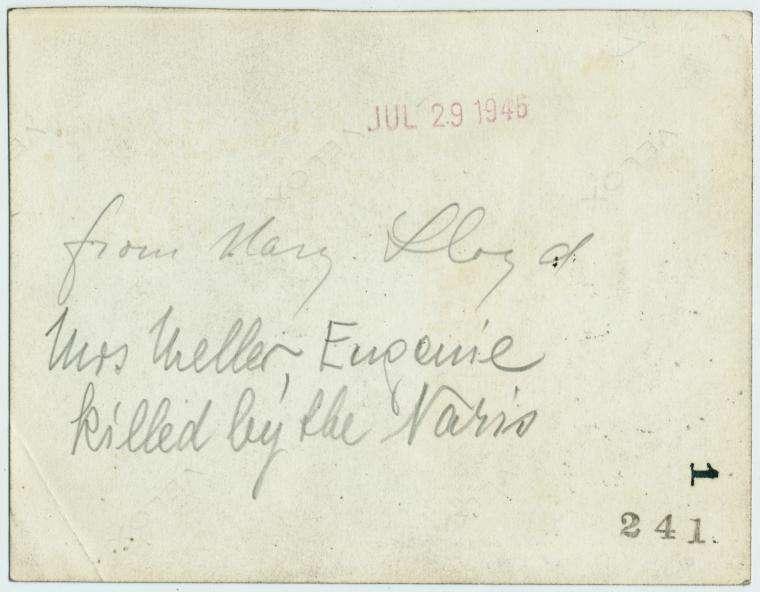 JUL 29 1946
from Mary Lloyd
Mrs Meller, Eugenie
killed by the Nazis
1
241.
VELOX
VELOX
VELOX
VELOX